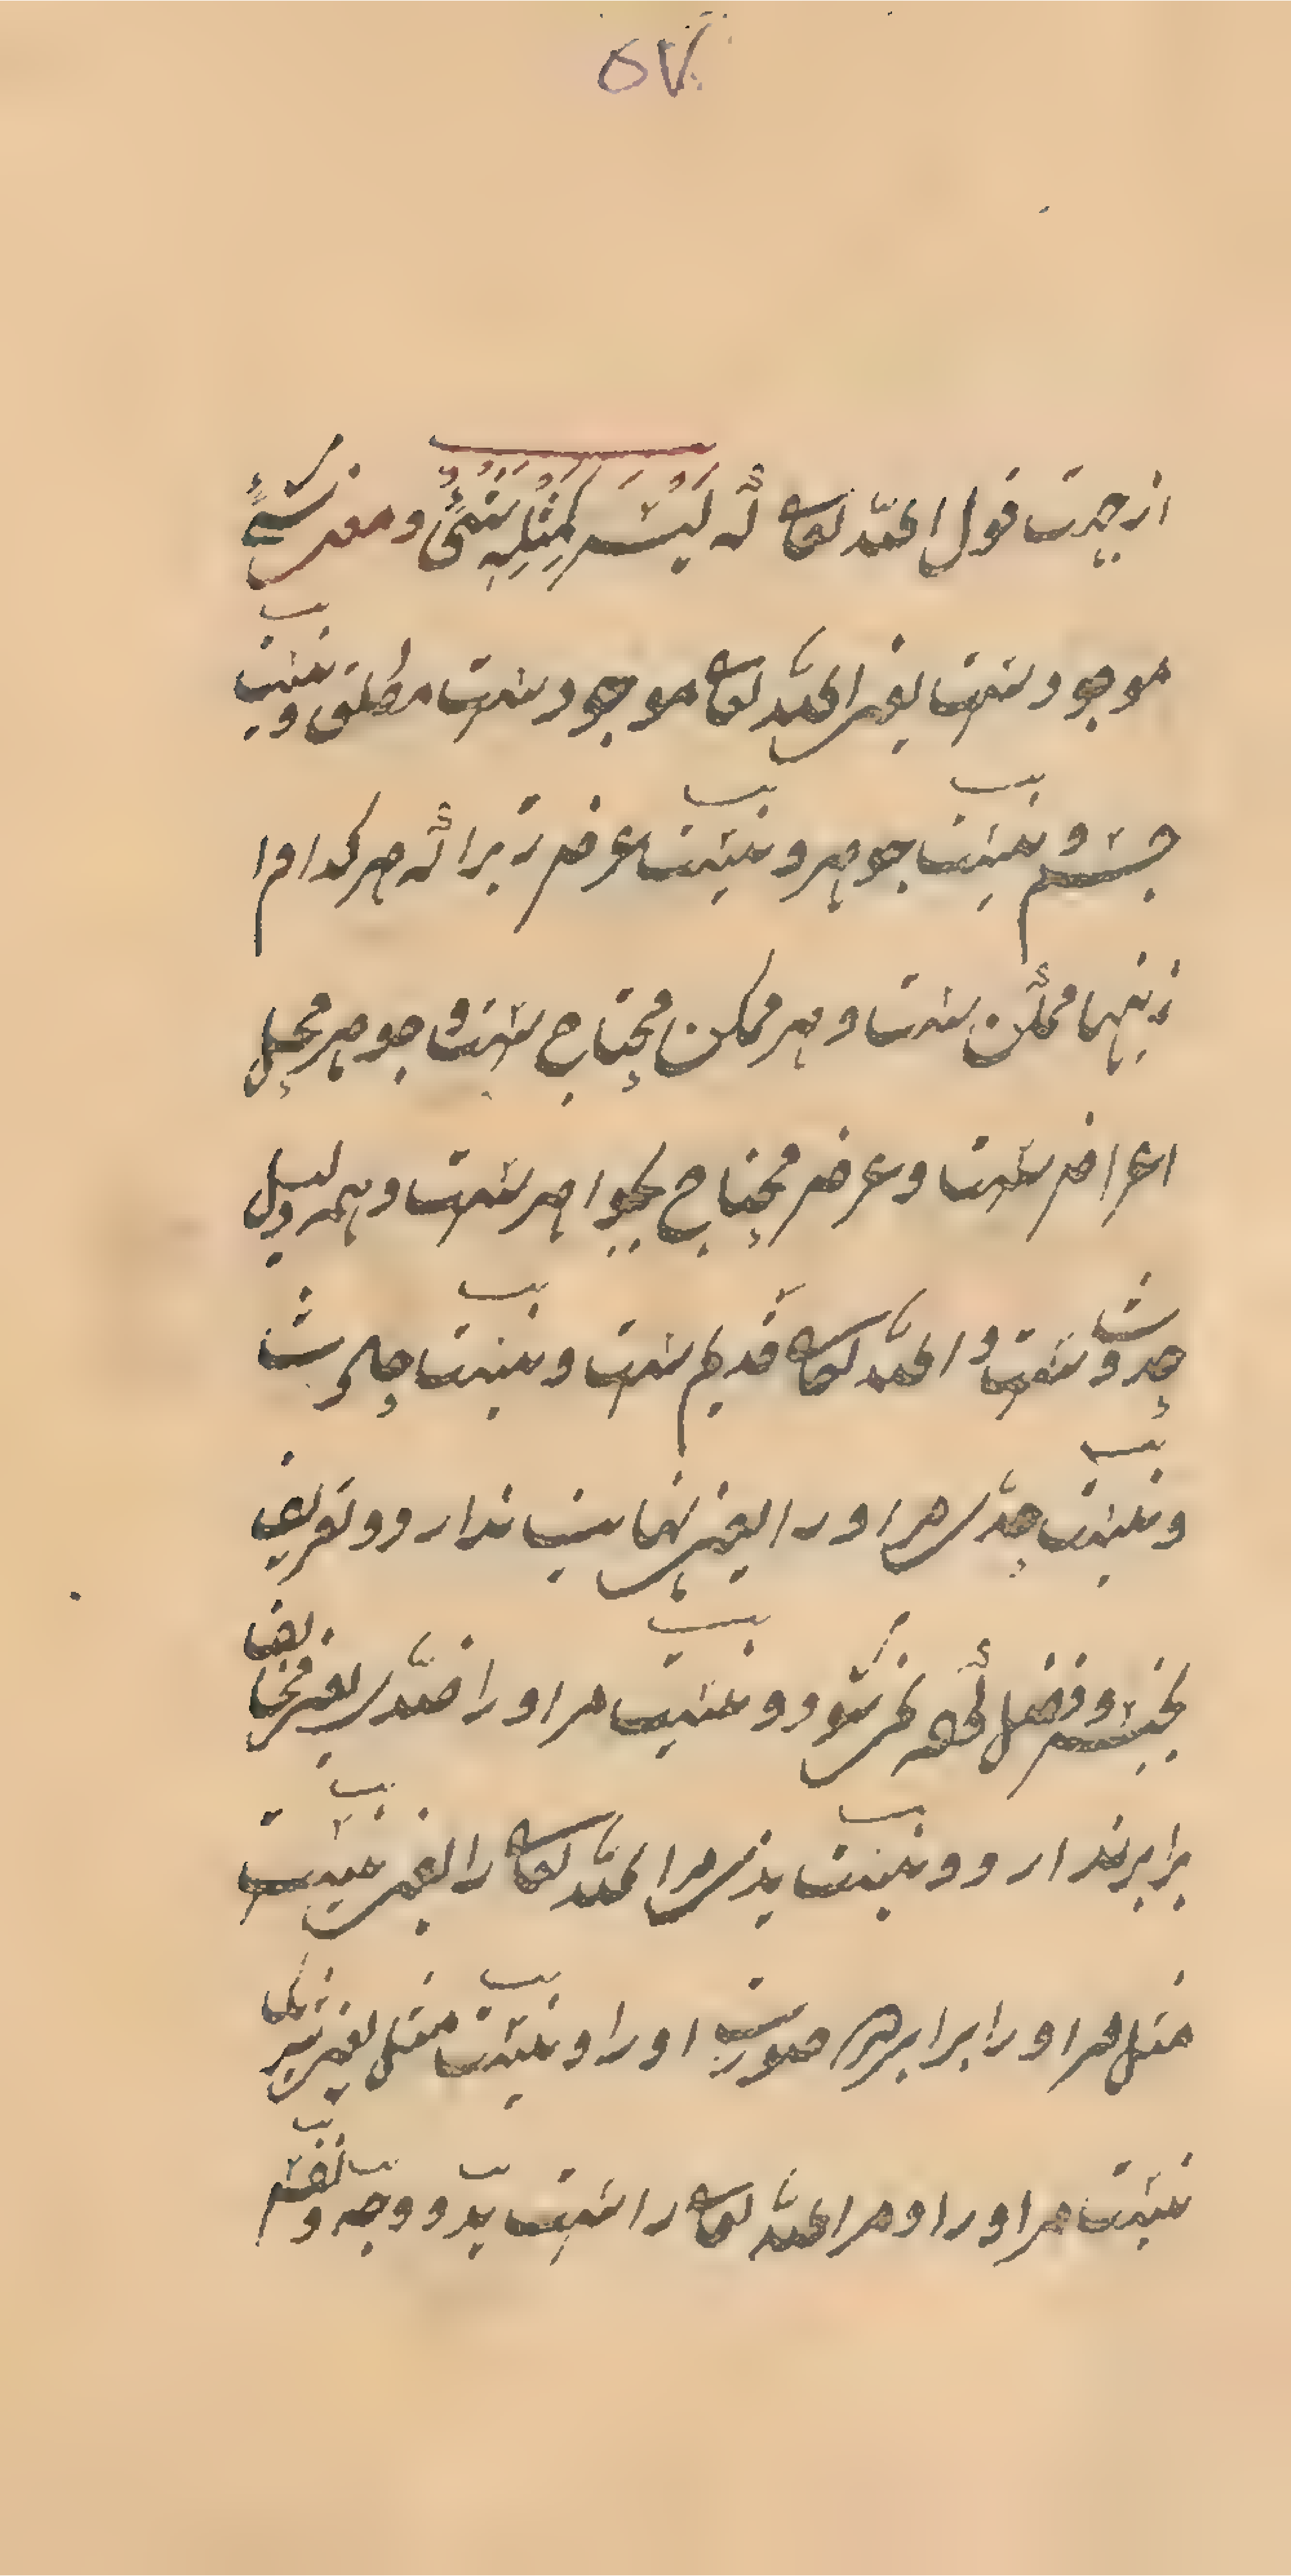 ۵۷
از جهت قول الله تعالی که لَیْسَ کَمِثْلِهٖ شَیْءٌ و معنی شَیْءٌ
موجودست یعنی الله تعالی موجودست مطلق و نیست
جسم و نیست جوهر و نیست عرض زیرا که هر کدام ا
زینها ممکن ست و هر ممکن محتاج ست و جوهر محل
اعراض ست و عرض محتاج بجواهر ست و همه دلیل
حدوث ست و الله تعالی قدیم ست و نیست حادث
و نیست حدّی مر او را یعنی نهایت ندارد و تعریف
بجنس و فصل کرده نمی شود و نیست مر او را ضدّی یعنی مخالف
برابر ندارد و نیست ندّی مر الله تعالی را یعنی نیست
مثل مر او را برابر در صورت او را و نیست مثل یعنی شریک
نیست مر او را و مر الله تعالی را ست ید و وجه و نفس